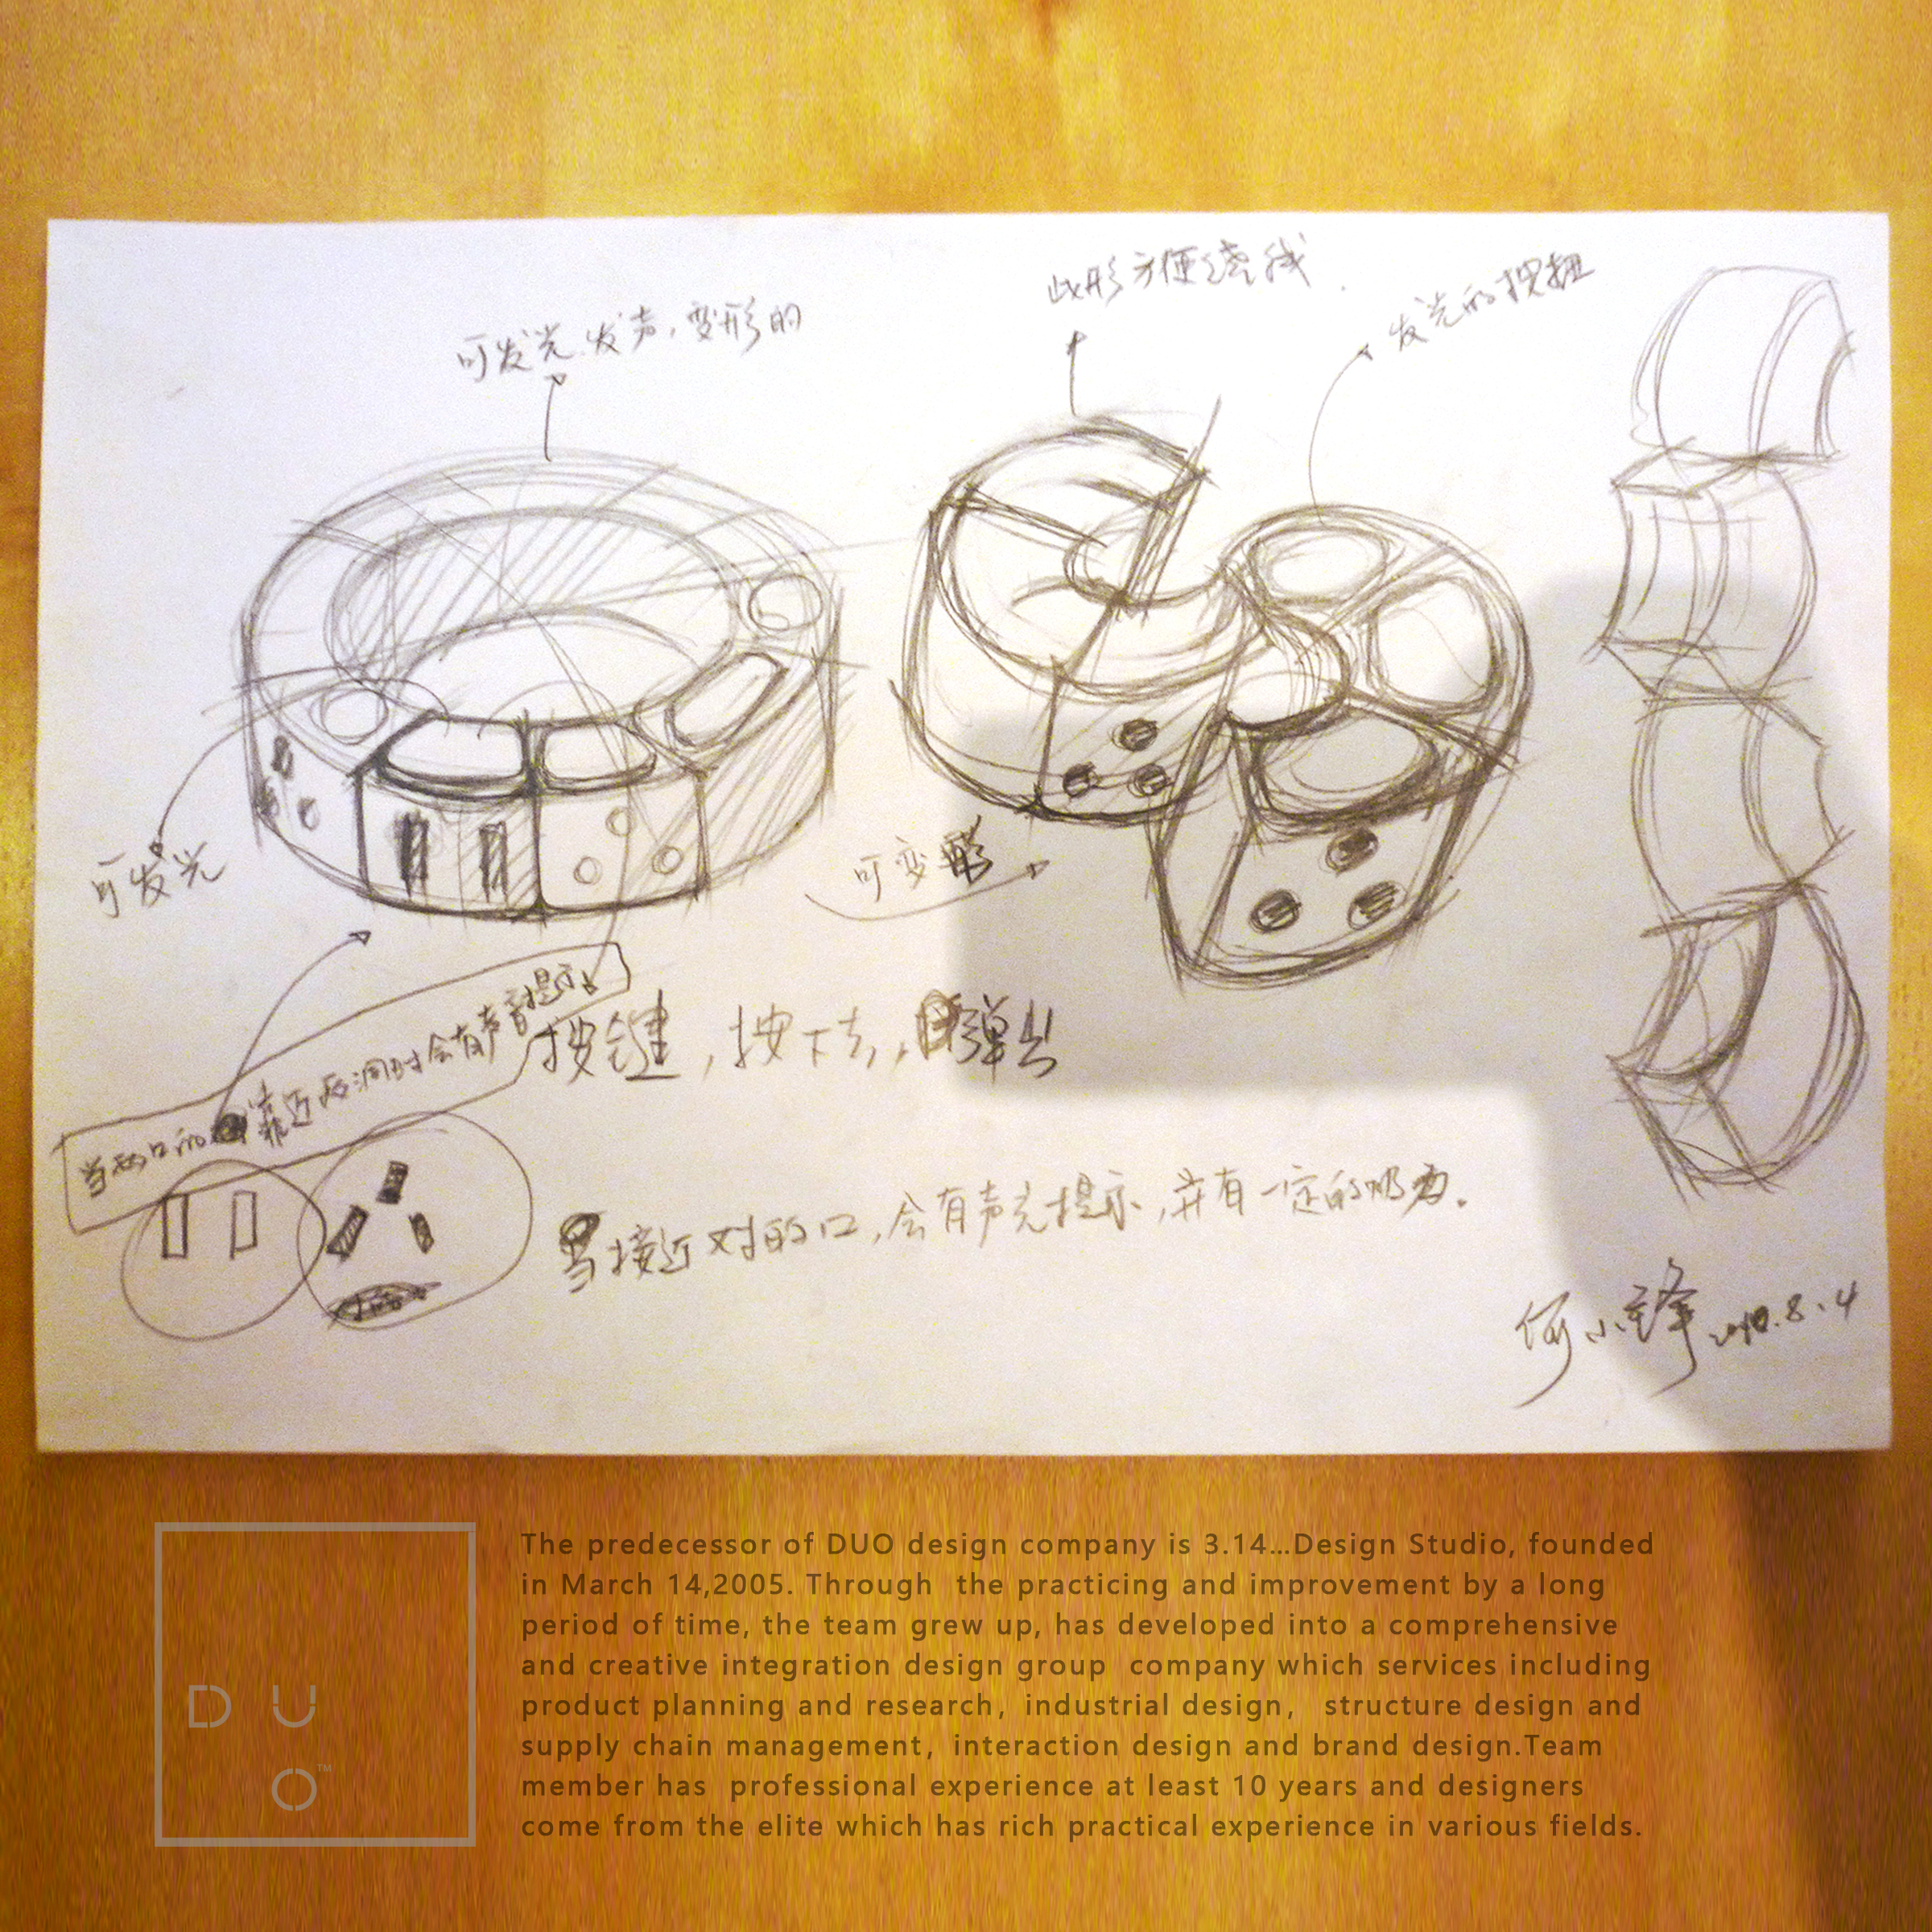 可发光、发声,变形的
此形方便绕线.
发光的按扭
可发光
可变形
当两口的靠近两洞时会有声音提示
按键,按下去,弹出
当接近对的口,会有声光提示,并有一定的吸力.
何小锋 2010.8.4
DUO™
The predecessor of DUO design company is 3.14...Design Studio, founded
in March 14,2005. Through the practicing and improvement by a long
period of time, the team grew up, has developed into a comprehensive
and creative integration design group company which services including
product planning and research, industrial design, structure design and
supply chain management, interaction design and brand design.Team
member has professional experience at least 10 years and designers
come from the elite which has rich practical experience in various fields.